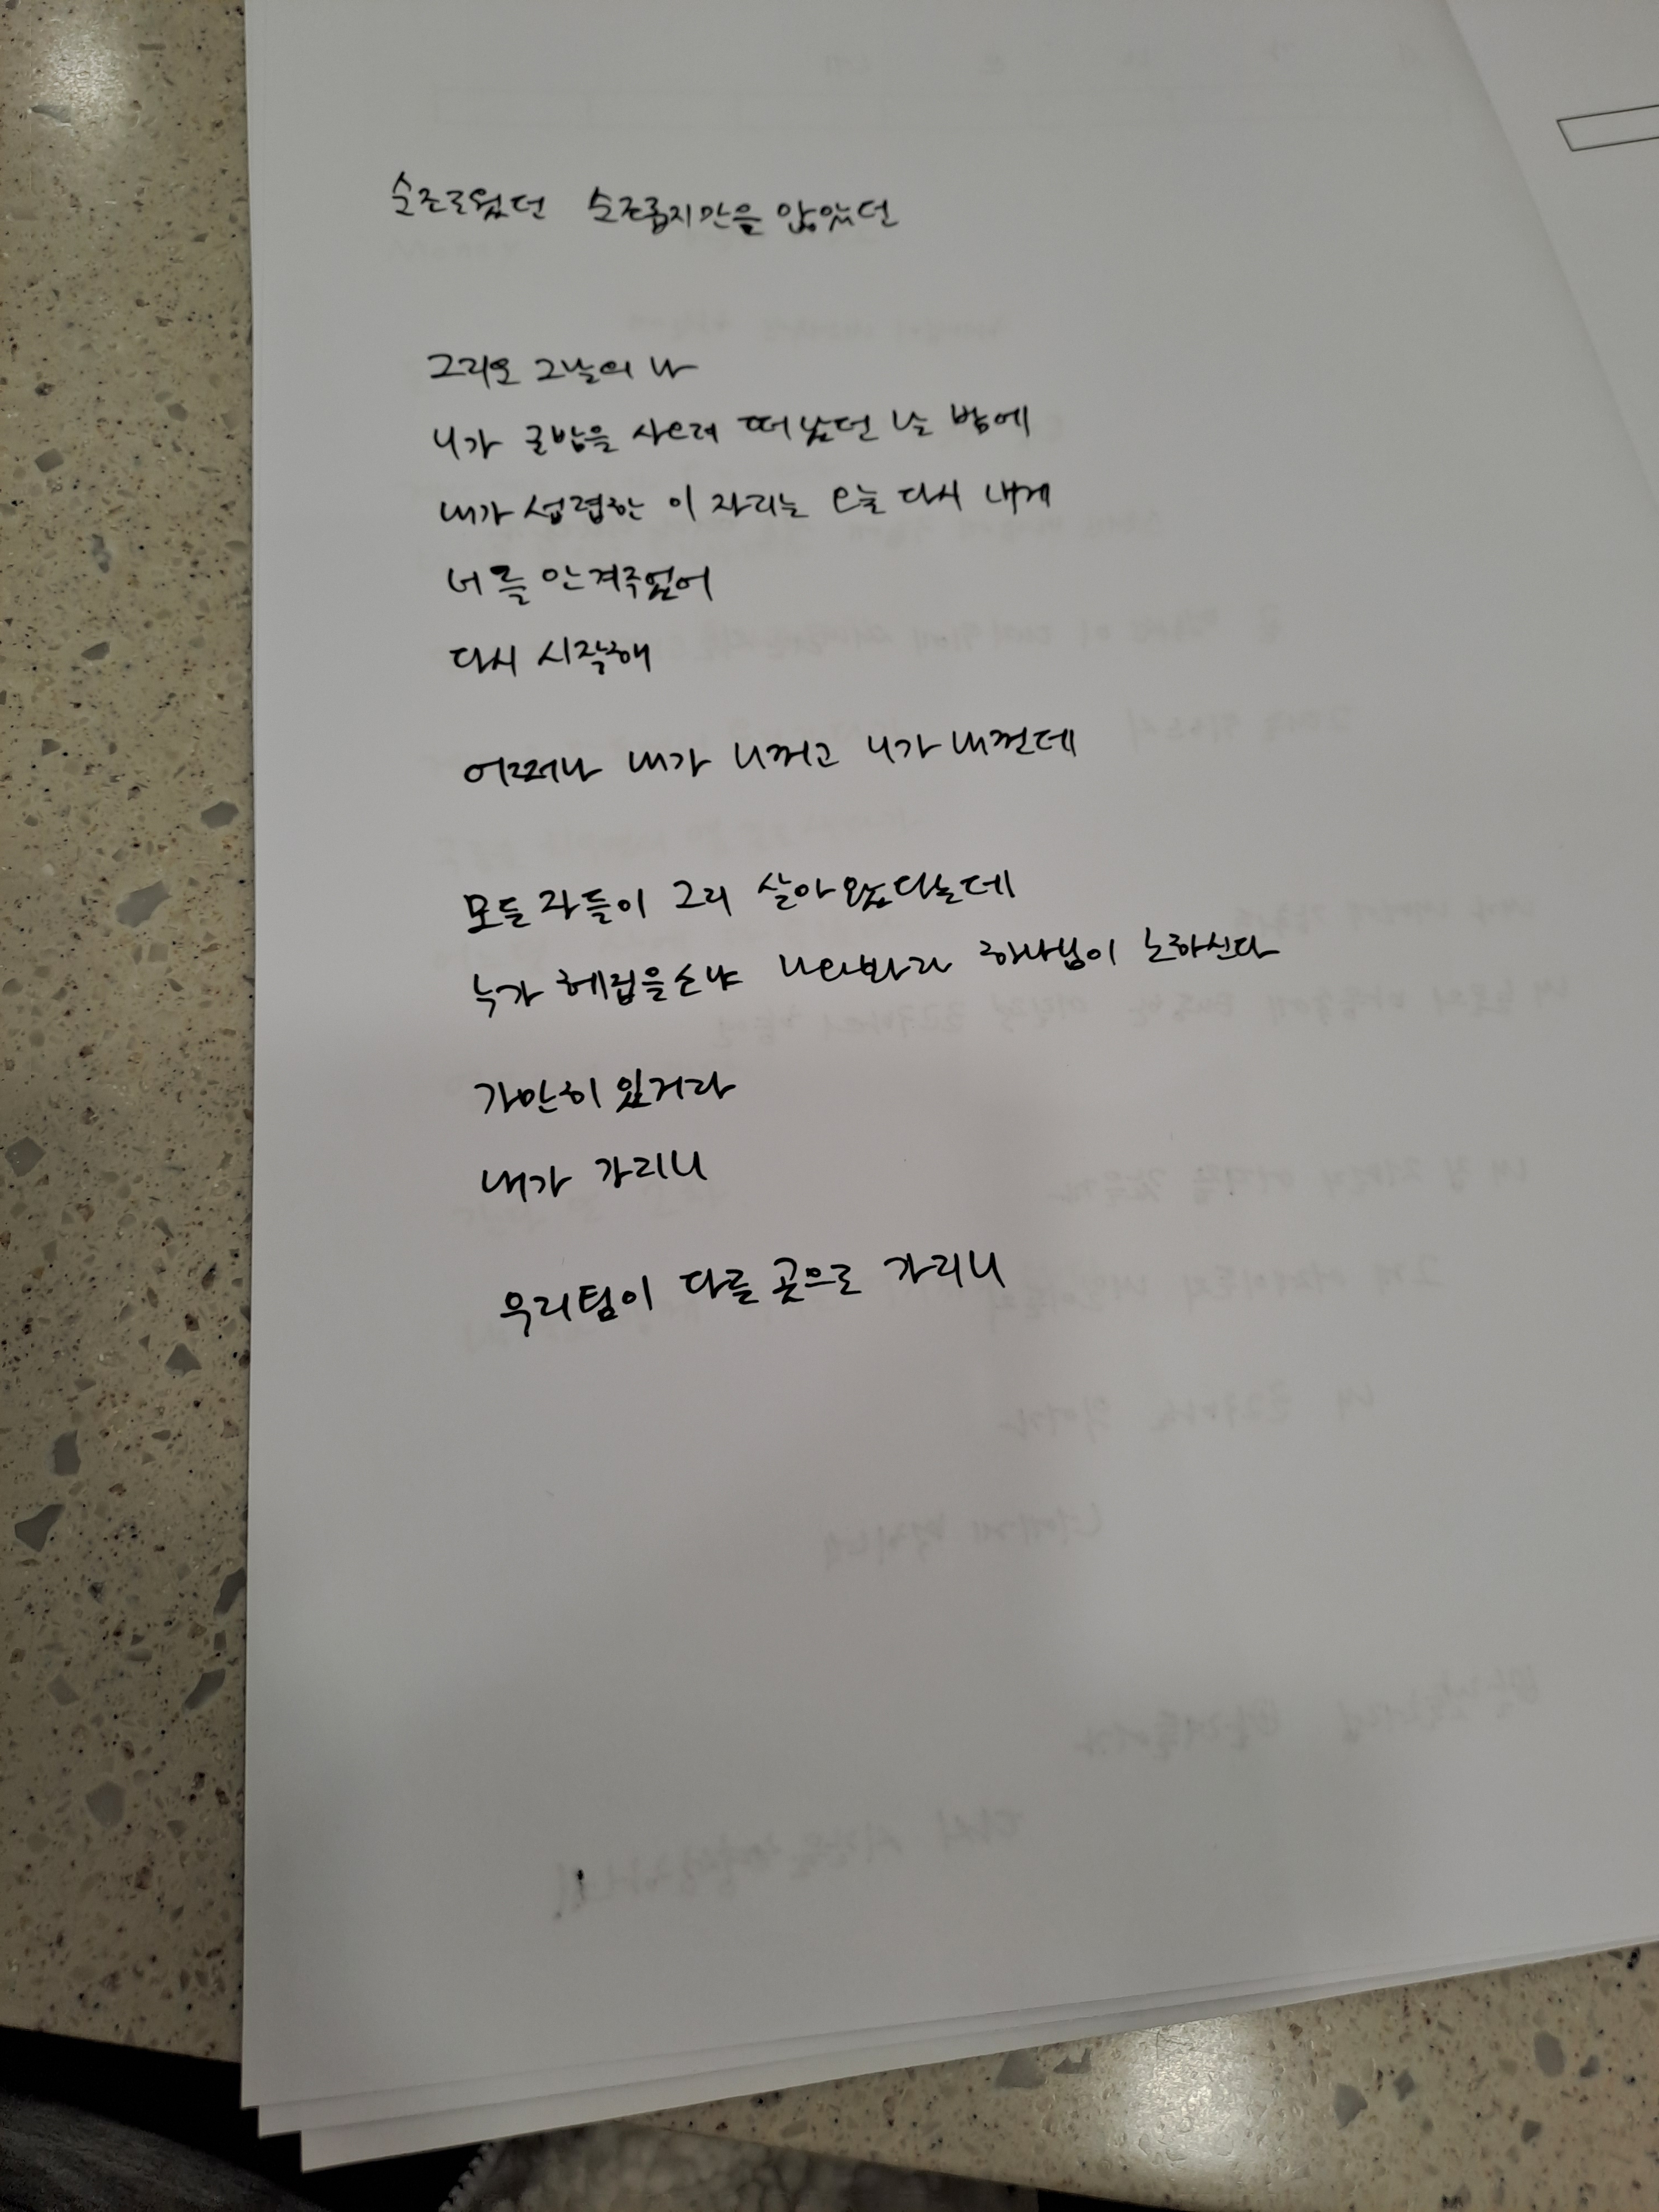 순조로웠던 순조롭지만은 않았던
그리오 그날의 나
니가 굴밥을 사려 떠났던 날 밤에
내가 섭렵한 이 자리는 오늘 다시 내게
너를 안겨주었어
다시 시작해
어쩌나 내가 니꺼고 니가 내껀데
모든 자들이 그리 살아왔다는데
누가 헤럽을소냐 하나님이 노하신다
가만히 있거라
내가 가리니
우리팀이 다를 곳으로 가리니